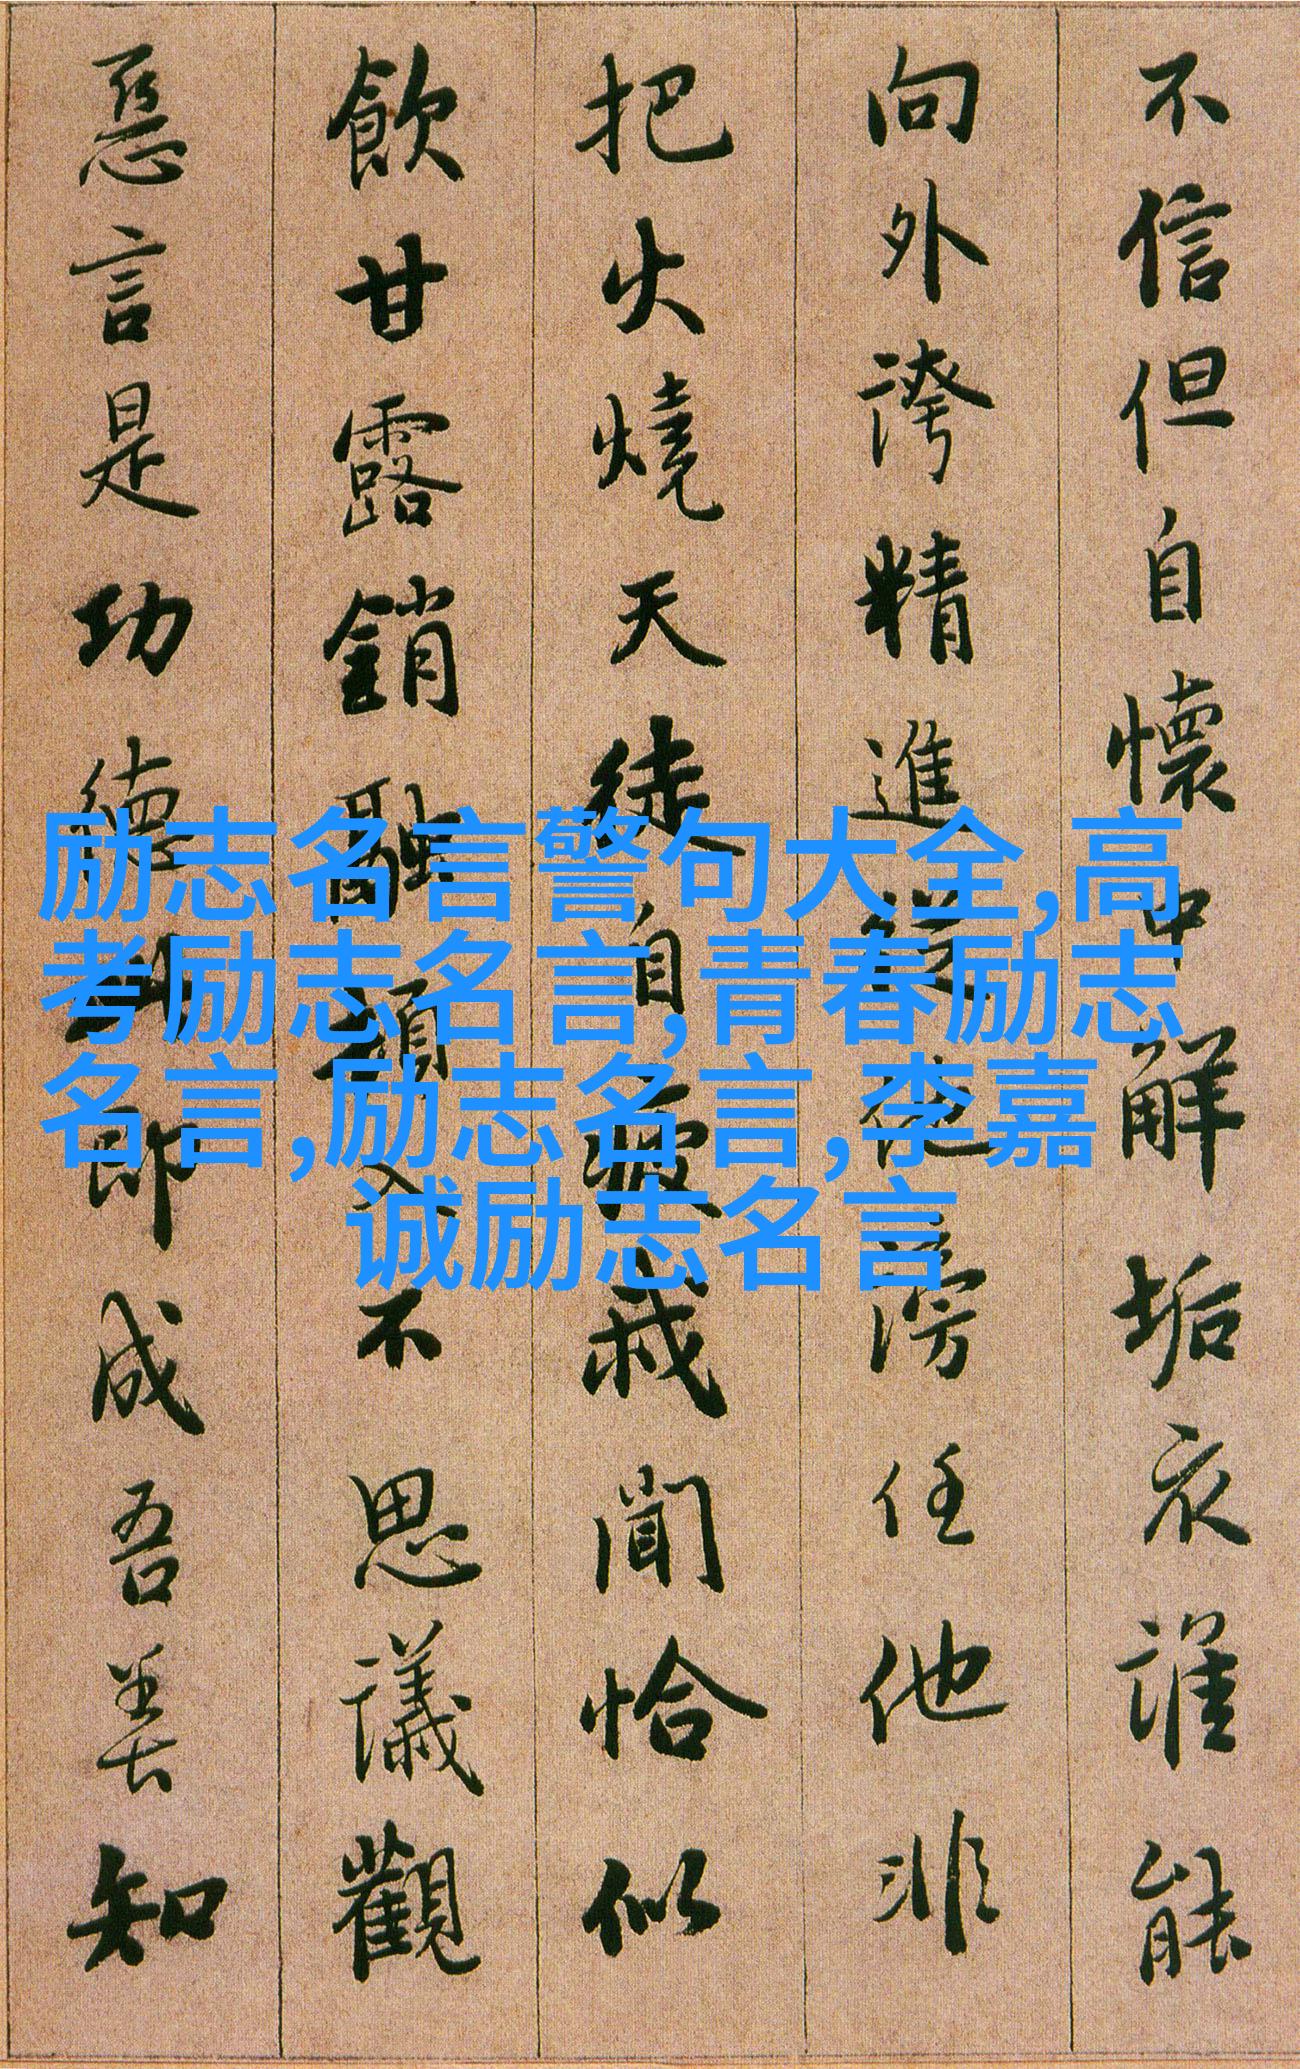 不信但自懷中解垢衣誰能
向外誇精進從他謗任他非
把火燒天徒自疲我聞恰似
飲甘露銷融頓入不思議觀
惡言是功德此即成吾善知
励志名言警句大全,高
考励志名言,青春励志
名言,励志名言,李嘉
诚励志名言